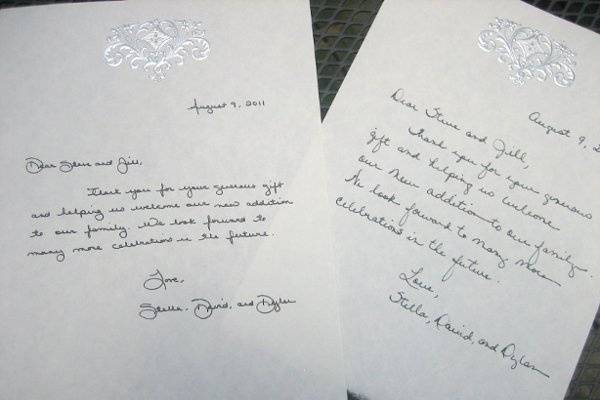 August 9, 2011
Dear Steve and Jill,
Thank you for your generous gift
and helping us welcome our new addition
to our family. We look forward to
many more celebrations in the future.
Love,
Stella, David, and Dylan
August 9, 2
Dear Steve and Jill,
Thank you for your generous
gift and helping us welcome
our new addition to our family.
We look forward to many more
celebrations in the future.
Love,
Stella, David, and Dylan